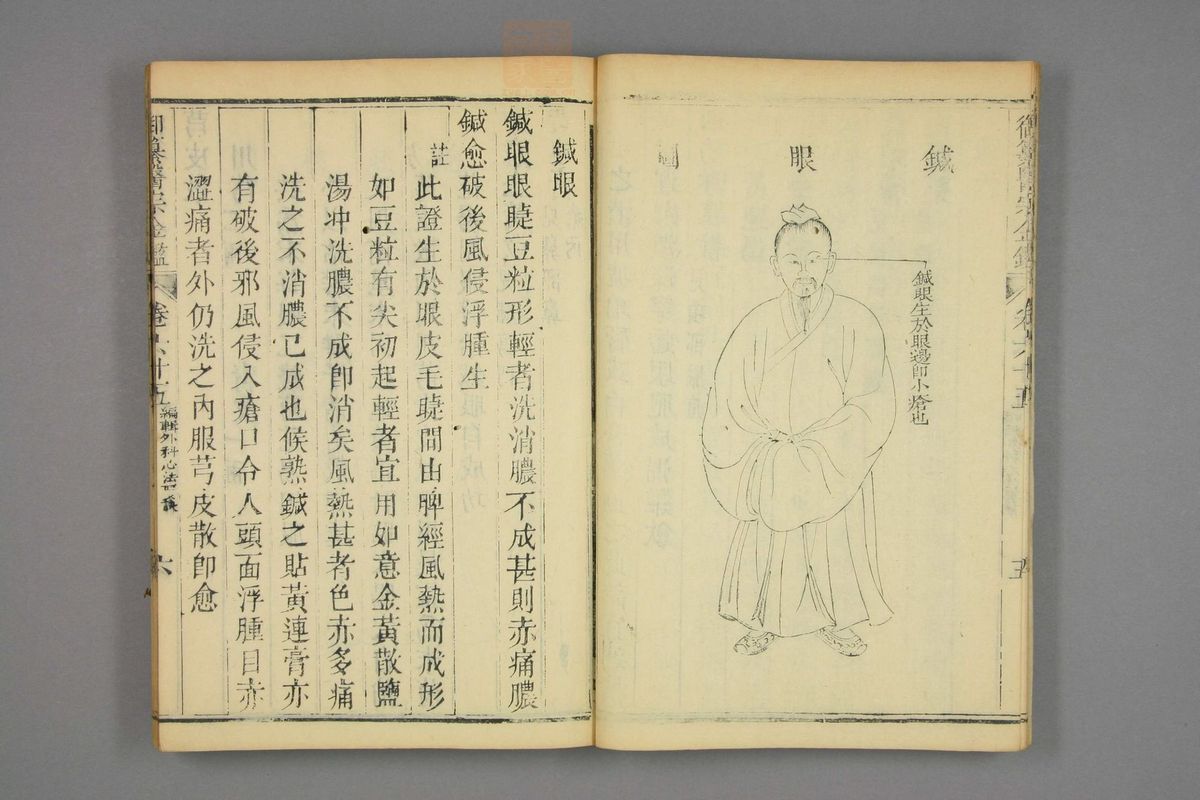 御纂醫宗金鑑 卷六十五 五
鍼眼圖
鍼眼生於眼邊卽小瘡也
鍼眼
鍼眼眼睫豆粒形輕者洗消膿不成甚則赤痛膿
鍼愈破後風侵浮腫生
註 此證生於眼皮毛睫間由脾經風熱而成形
如豆粒有尖初起輕者宜用如意金黃散鹽
湯冲洗膿不成卽消矣風熱甚者色赤多痛
洗之不消膿已成也候熟鍼之貼黃連膏亦
有破後邪風侵入瘡口令人頭面浮腫目赤
澀痛者外仍洗之內服芎皮散卽愈
御纂醫宗金鑑 卷六十五 編輯外科心法要訣 六